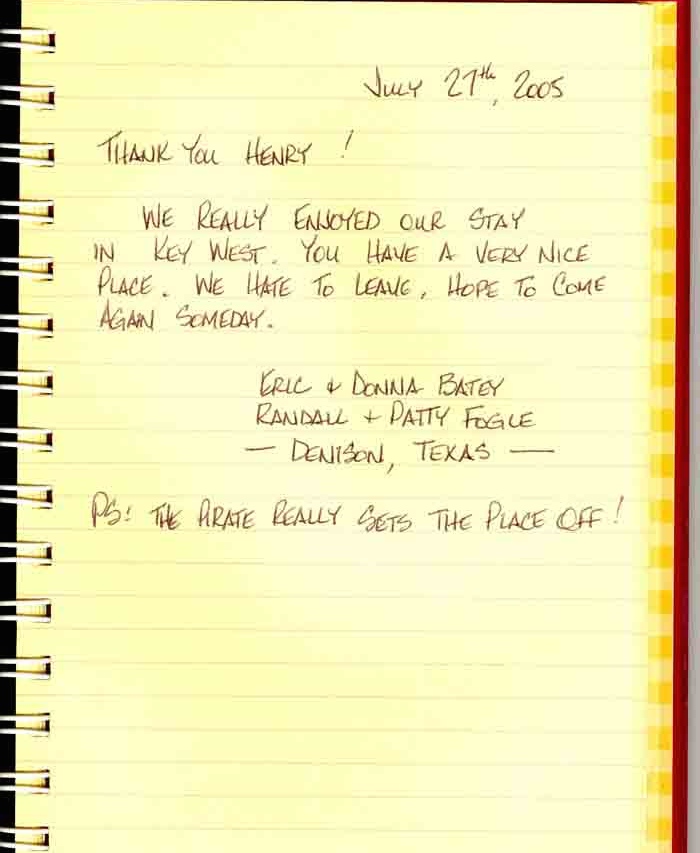 JULY 27th, 2005
THANK YOU HENRY !
WE REALLY ENJOYED OUR STAY
IN KEY WEST. YOU HAVE A VERY NICE
PLACE. WE HATE TO LEAVE, HOPE TO COME
AGAIN SOMEDAY.
ERIC & DONNA BATEY
RANDALL + PATTY FOGLE
— DENISON, TEXAS —
PS: THE PIRATE REALLY SETS THE PLACE OFF!